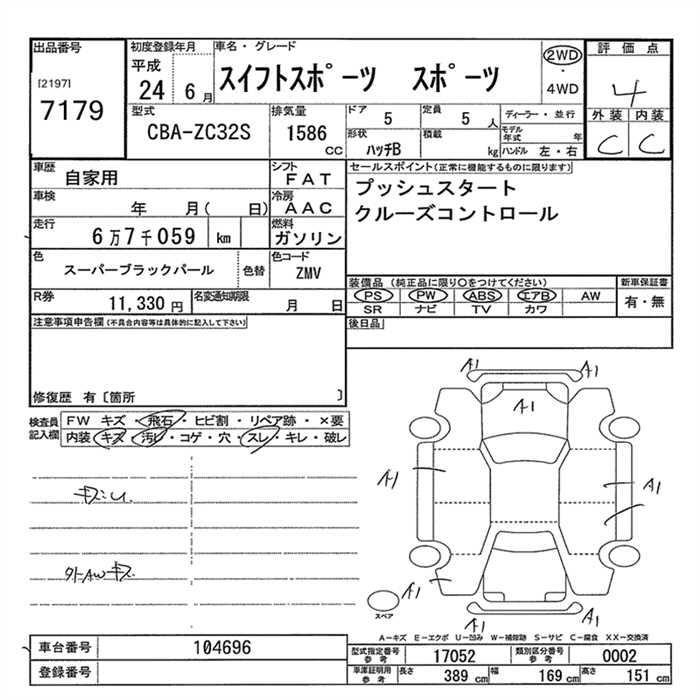 出品番号 初度登録年月 車名・グレード 評価点
[2197]
7179
平成 24 6月 スイフトスポーツ スポーツ 2WD・4WD 4
外装 内装
C C
型式 排気量 ドア 5 定員 5人 ディーラー・並行
CBA-ZC32S 1586cc 形状 ハッチB 積載 kg モデル年式 年
ハンドル 左・右
車歴 自家用 シフト FAT セールスポイント(正常に機能するものに限ります)
プッシュスタート
クルーズコントロール
車検 年 月( 日) 冷房 AAC
走行 6万7千059 km 燃料 ガソリン
色 スーパーブラックパール 色替 色コード ZMV
装備品(純正品に限り○をつけてください) 新車保証書
PS PW ABS エアB AW 有・無
SR ナビ TV カワ
R券 11,330円 名変通知期限 月 日
注意事項申告欄(不具合内容等は具体的に記入して下さい) 後日品
修復歴 有〔箇所 〕
検査員記入欄
FW キズ・飛石・ヒビ割・リペア跡・×要
内装 キズ・汚レ・コゲ・穴・スレ・キレ・破レ
キズU
外AWキズ
A1 A1
A1
A1 A1
A1
A1 A1
スペア
A-キズ E-エクボ U-凹み W-補修跡 S-サビ C-腐食 XX-交換済
車台番号 104696
登録番号
型式指定番号参考 17052 類別区分番号参考 0002
車庫証明用参考 長さ 389cm 幅 169cm 高さ 151cm